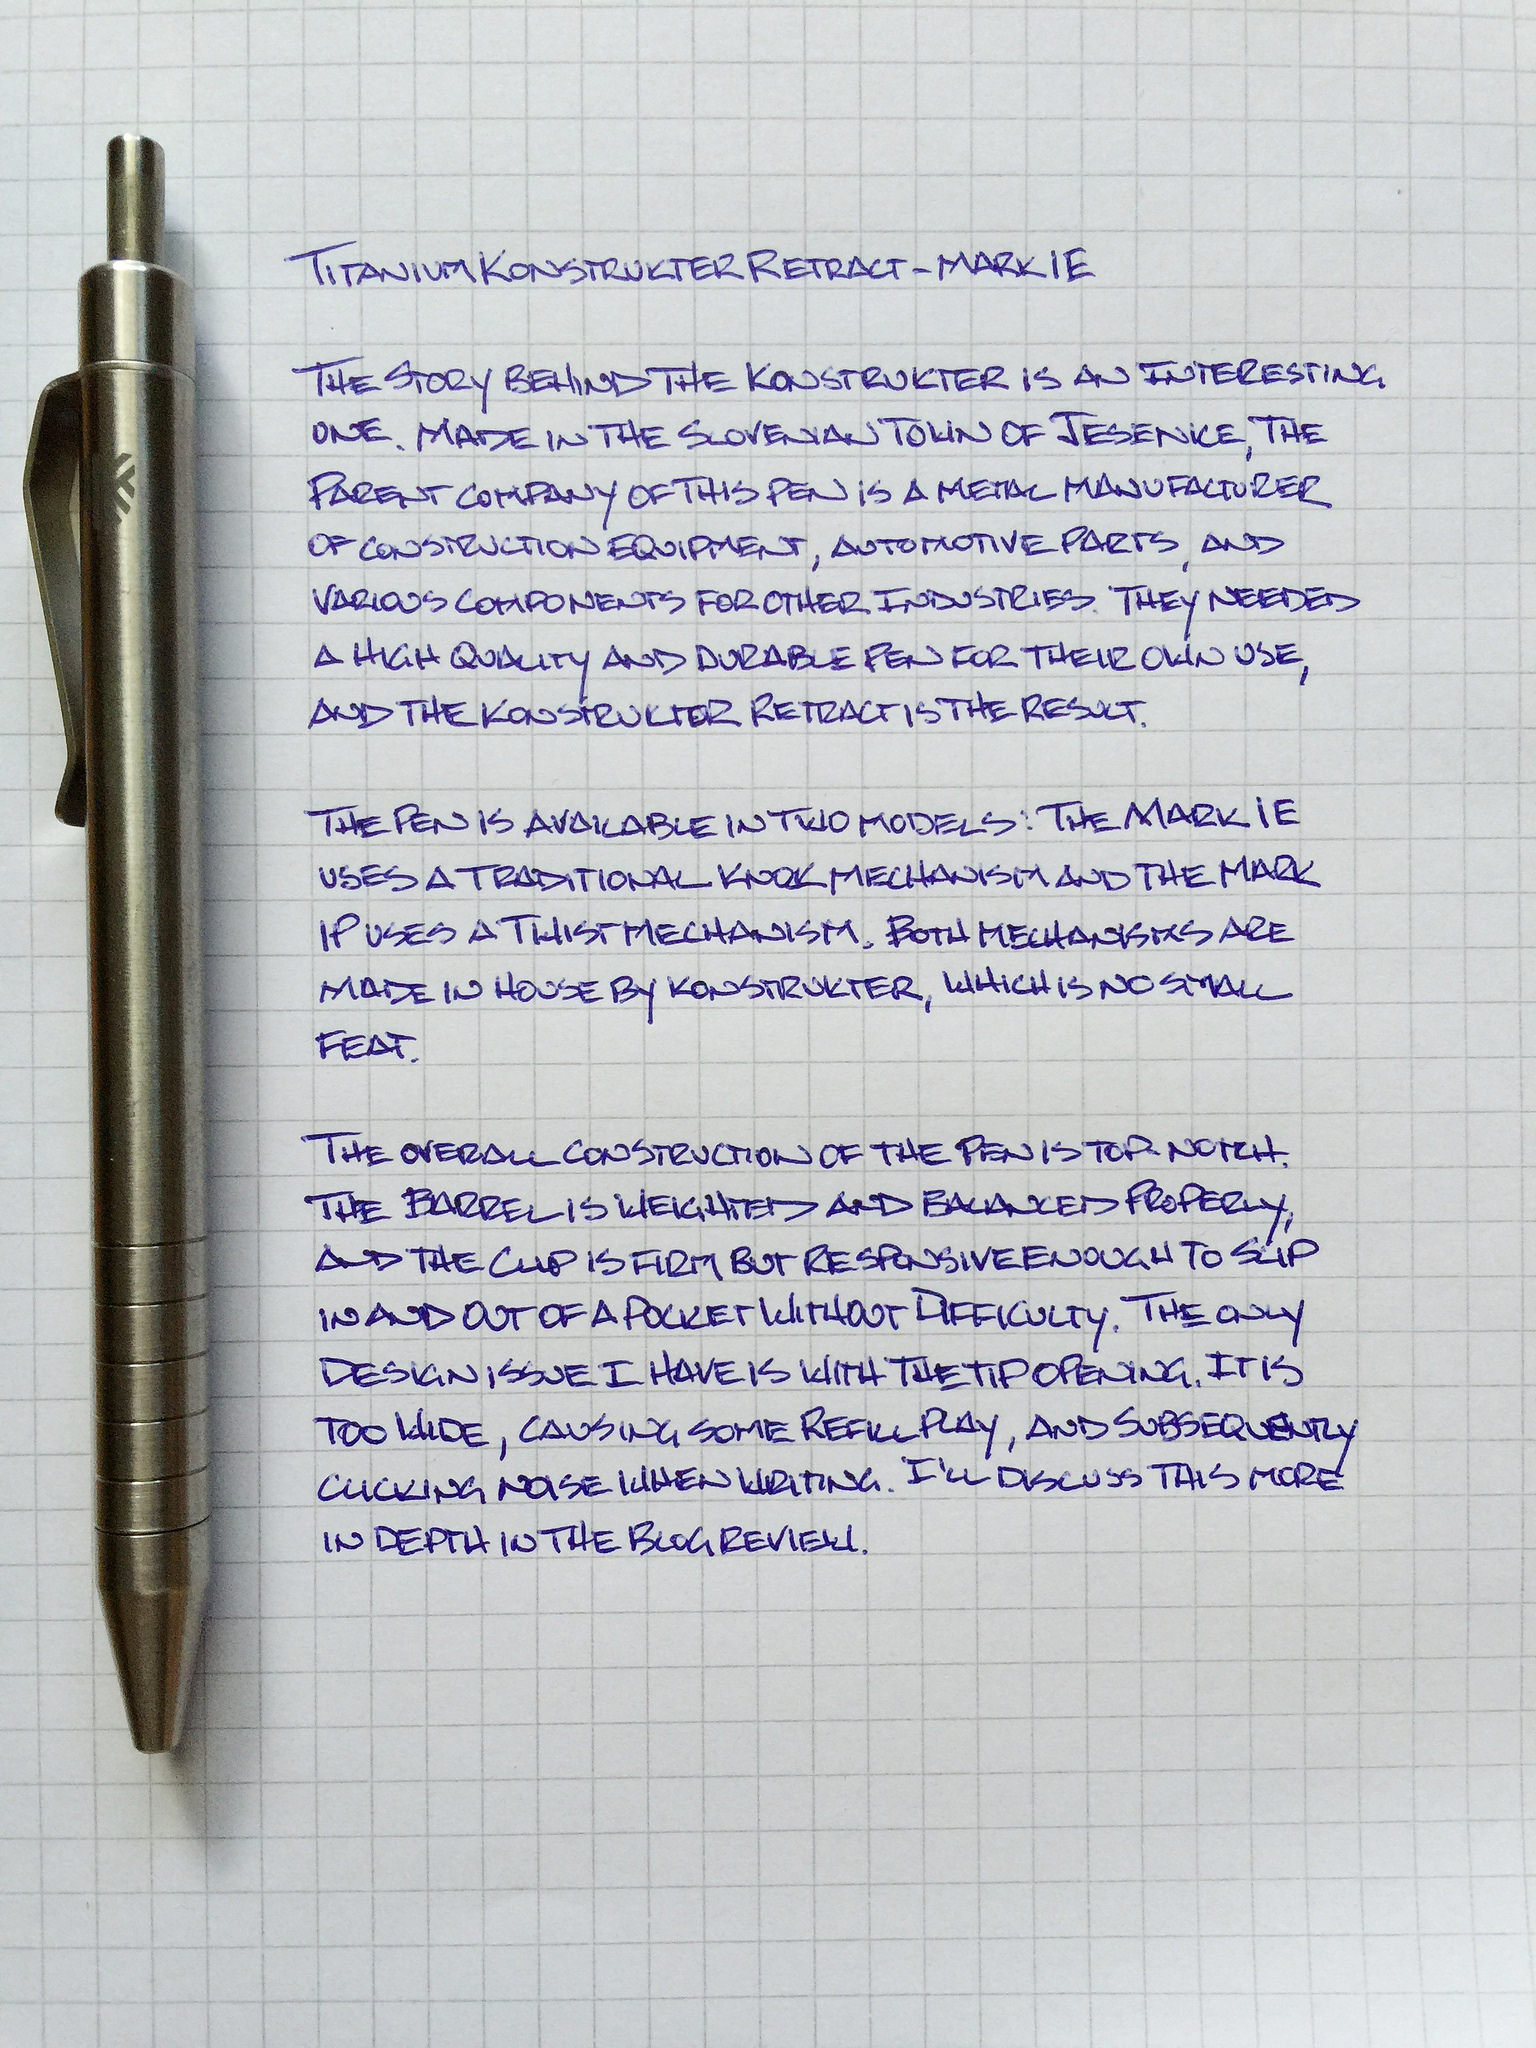 TITANIUM KONSTRUKTER RETRACT - MARK IE
THE STORY BEHIND THE KONSTRUKTER IS AN INTERESTING
ONE. MADE IN THE SLOVENIAN TOWN OF JESENICE, THE
PARENT COMPANY OF THIS PEN IS A METAL MANUFACTURER
OF CONSTRUCTION EQUIPMENT, AUTOMOTIVE PARTS, AND
VARIOUS COMPONENTS FOR OTHER INDUSTRIES. THEY NEEDED
A HIGH QUALITY AND DURABLE PEN FOR THEIR OWN USE,
AND THE KONSTRUKTER RETRACT IS THE RESULT.
THE PEN IS AVAILABLE IN TWO MODELS: THE MARK IE
USES A TRADITIONAL KNOCK MECHANISM AND THE MARK
IP USES A TWIST MECHANISM. BOTH MECHANISMS ARE
MADE IN HOUSE BY KONSTRUKTER, WHICH IS NO SMALL
FEAT.
THE OVERALL CONSTRUCTION OF THE PEN IS TOP-NOTCH.
THE BARREL IS WEIGHTED AND BALANCED PROPERLY,
AND THE CLIP IS FIRM BUT RESPONSIVE ENOUGH TO SLIP
IN AND OUT OF A POCKET WITHOUT DIFFICULTY. THE ONLY
DESIGN ISSUE I HAVE IS WITH THE TIP OPENING. IT IS
TOO WIDE, CAUSING SOME REFILL PLAY, AND SUBSEQUENTLY
CLICKING NOISE WHEN WRITING. I'LL DISCUSS THIS MORE
IN DEPTH IN THE BLOG REVIEW.